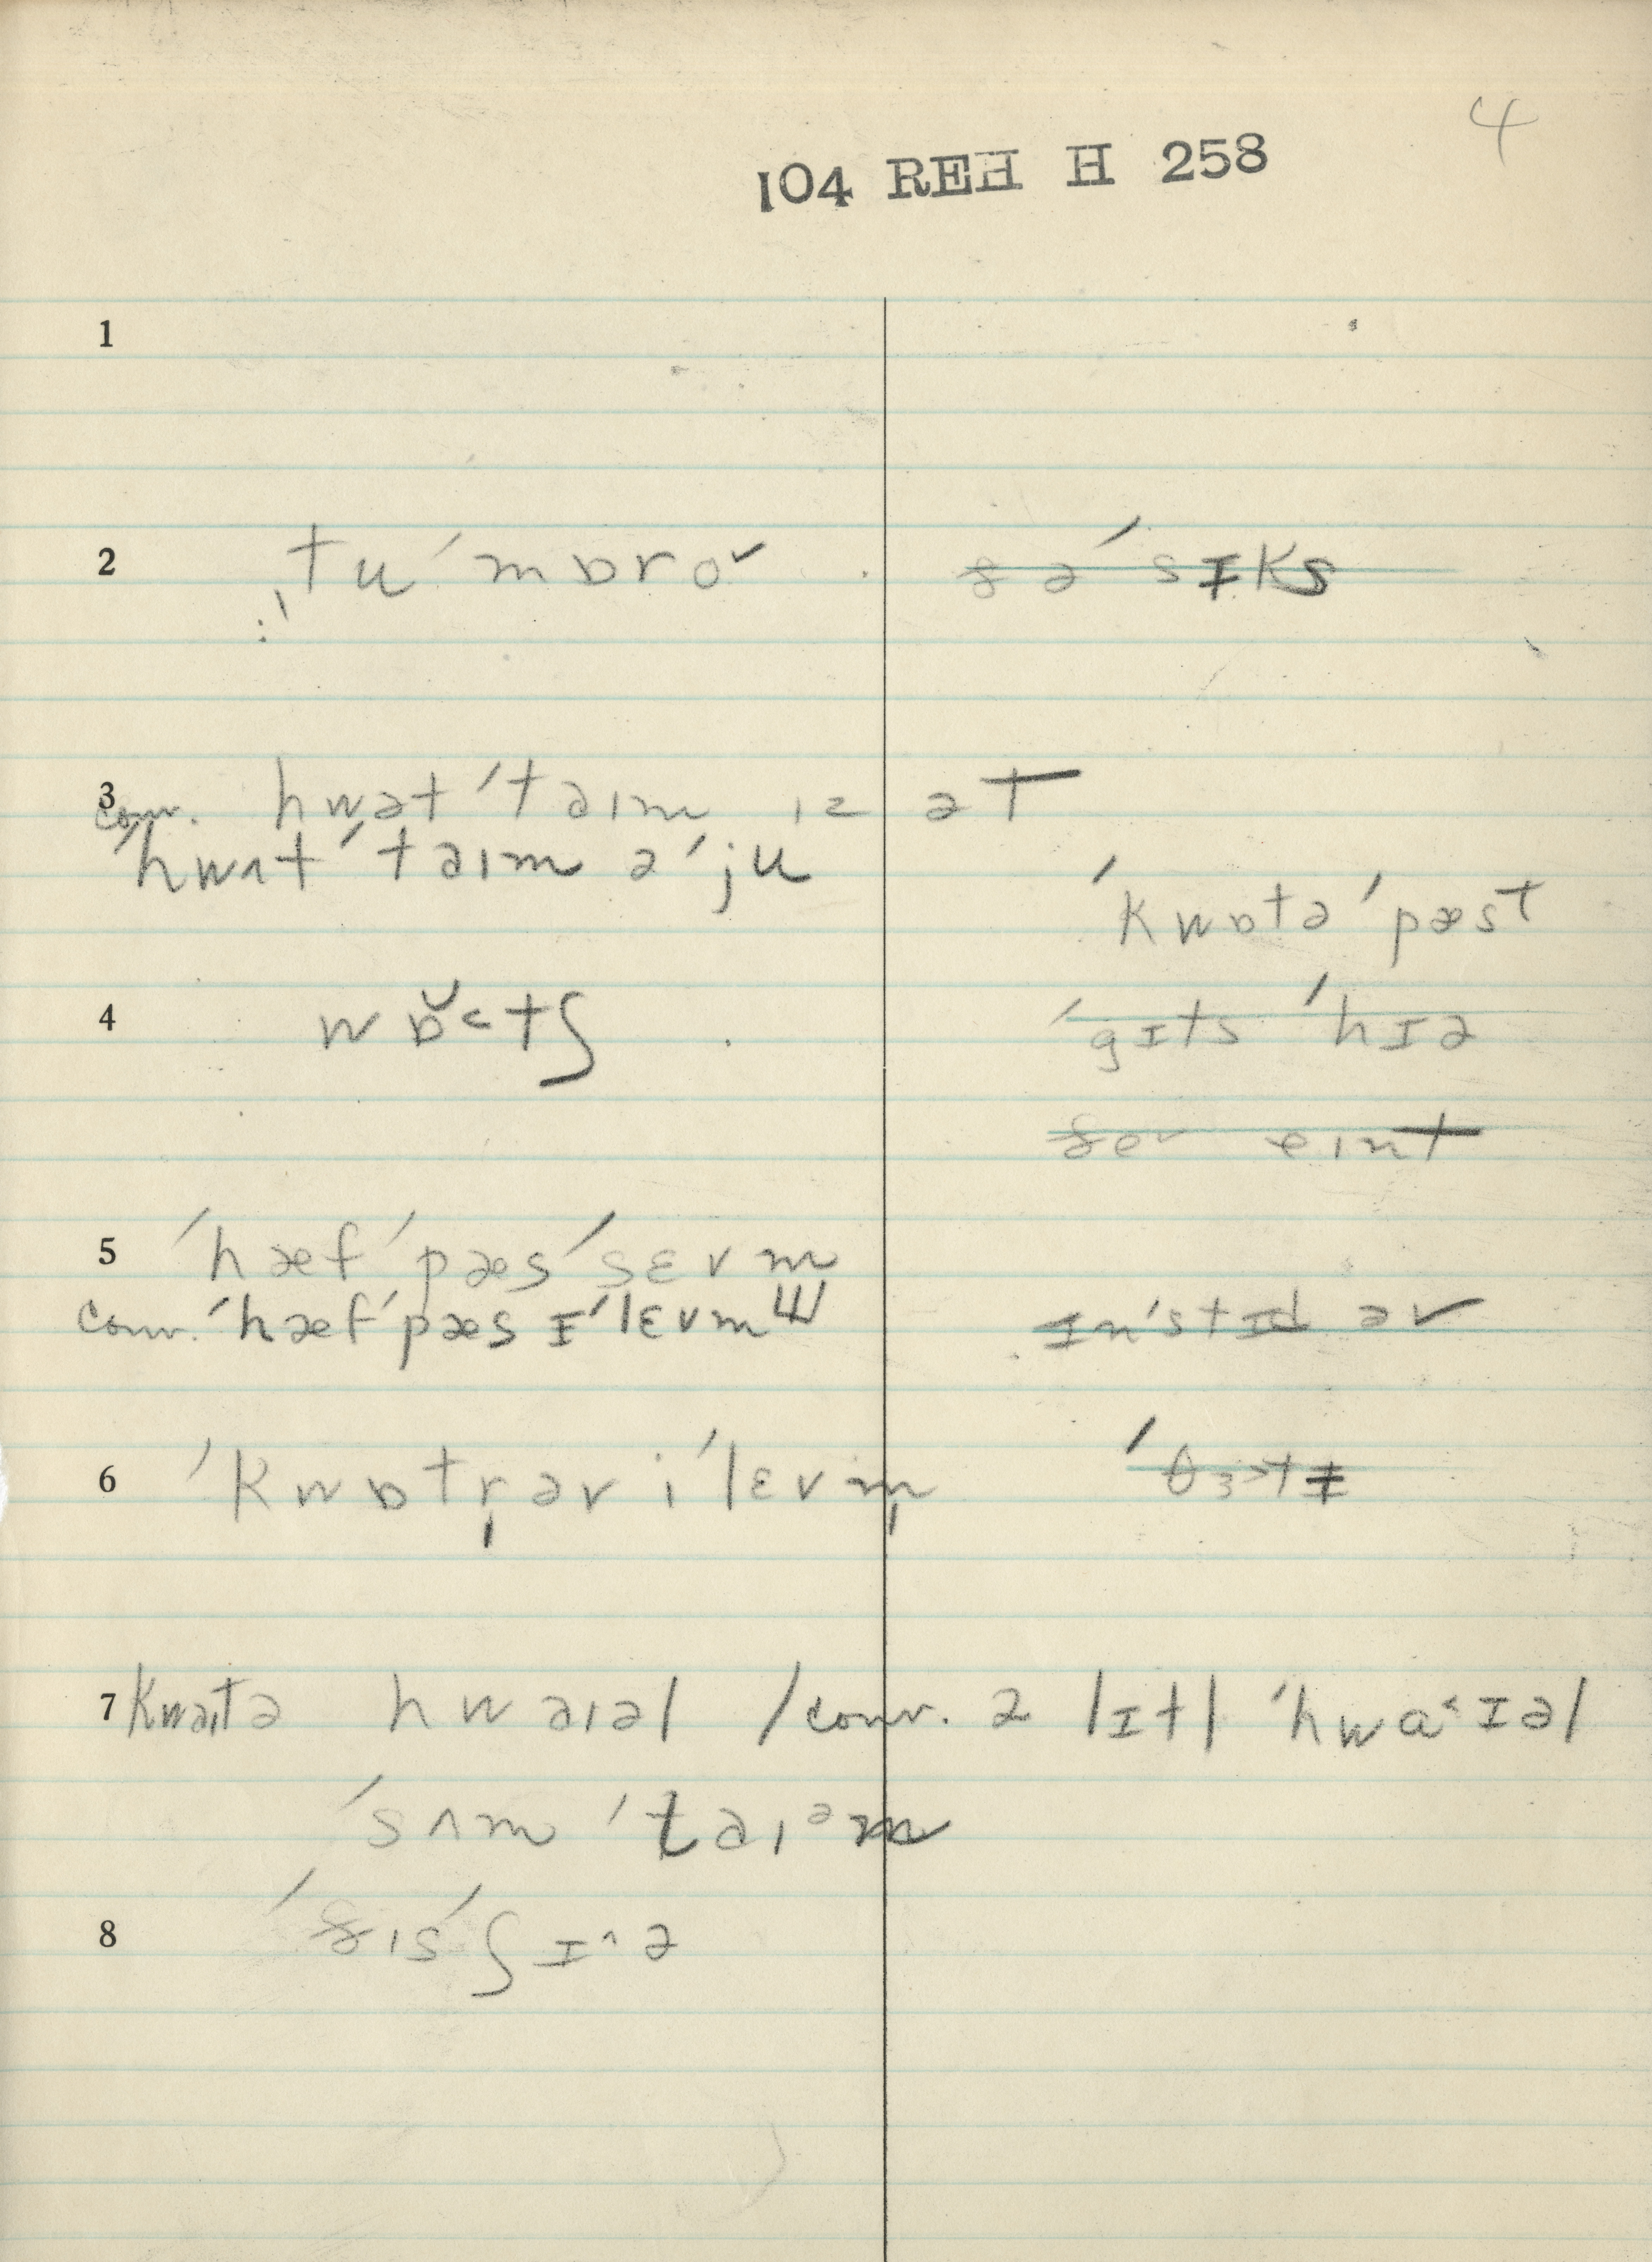 4
104 REH H 258
1
2 tu ˈmɒro˅ ðə ˈsɪks
3 hwət ˈtaɪm ɪz ət
conv. ˈhwʌt ˈtaɪm ə ˈju
ˈkwɒtə ˈpæst
4 wɒ̆˂tʃ ˈgɪts ˈhɪə
ðe˅ eɪnt
5 ˈhæf ˈpæs ˈsɛvm
conv. ˈhæf ˈpæs ɪˈlɛvm ɪnˈstɪd əv
6 ˈkwɒtr̩ əv iˈlɛvm̩ ˈθɜ˃tɪ
7 kwaɪtə hwaɪəl / conv. ə lɪtl ˈhwa˂ɪəl
ˈsʌm ˈtaɪᵊm
8 ˈðɪs ˈʃɪ^ə